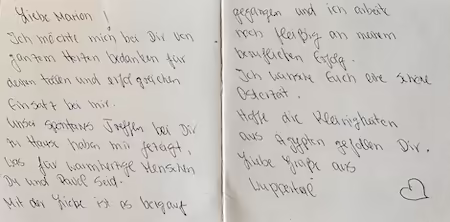 Liebe Marion!
Ich möchte mich bei Dir von
ganzem Herzen bedanken für
deinen tollen und erfolgreichen
Einsatz bei mir.
Unser spontanes Treffen bei Dir
zu Hause haben mir gezeigt,
was für warmherzige Menschen
Du und Pavel seid.
Mit der Liebe ist es bergauf
gegangen und ich arbeite
noch fleißig an meinem
beruflichen Erfolg.
Ich wünsche Euch eine schöne
Osterzeit.
Hoffe die Kleinigkeiten
aus Ägypten gefallen Dir.
Liebe Grüße aus
Wuppertal